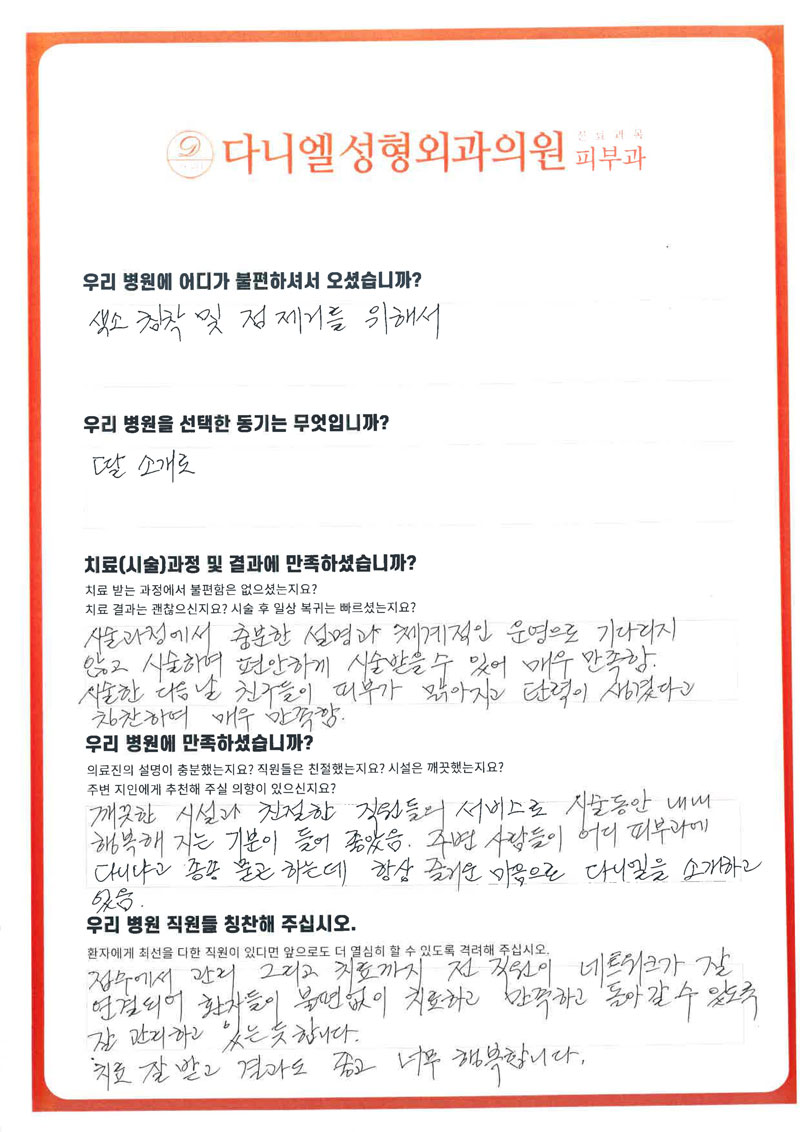 다니엘성형외과의원 진료과목 피부과
우리 병원에 어디가 불편하셔서 오셨습니까?
색소 침착 및 점 제거를 위해서
우리 병원을 선택한 동기는 무엇입니까?
딸 소개로
치료(시술)과정 및 결과에 만족하셨습니까?
치료 받는 과정에서 불편함은 없으셨는지요?
치료 결과는 괜찮으신지요? 시술 후 일상 복귀는 빠르셨는지요?
시술과정에서 충분한 설명과 체계적인 운영으로 기다리지
않고 시술하며 편안하게 시술받을 수 있어 매우 만족함.
시술한 다음날 친구들이 피부가 맑아지고 탄력이 생겼다고
칭찬하며 매우 만족함.
우리 병원에 만족하셨습니까?
의료진의 설명이 충분했는지요? 직원들은 친절했는지요? 시설은 깨끗했는지요?
주변 지인에게 추천해 주실 의향이 있으신지요?
깨끗한 시설과 친절한 직원들의 서비스로 시술동안 내내
행복해 지는 기분이 들어 좋았음. 주변 사람들이 어디 피부과에
다니냐고 종종 묻곤 하는데 항상 즐거운 마음으로 다니엘을 소개하고
있음.
우리 병원 직원들 칭찬해 주십시오.
환자에게 최선을 다한 직원이 있다면 앞으로도 더 열심히 할 수 있도록 격려해 주십시오.
접수에서 관리 그리고 치료까지 전 직원이 네트워크가 잘
연결되어 환자들이 불편없이 치료하고 만족하고 돌아갈 수 있도록
잘 관리하고 있는 듯 합니다.
치료 잘 받고 결과도 좋고 너무 행복합니다.